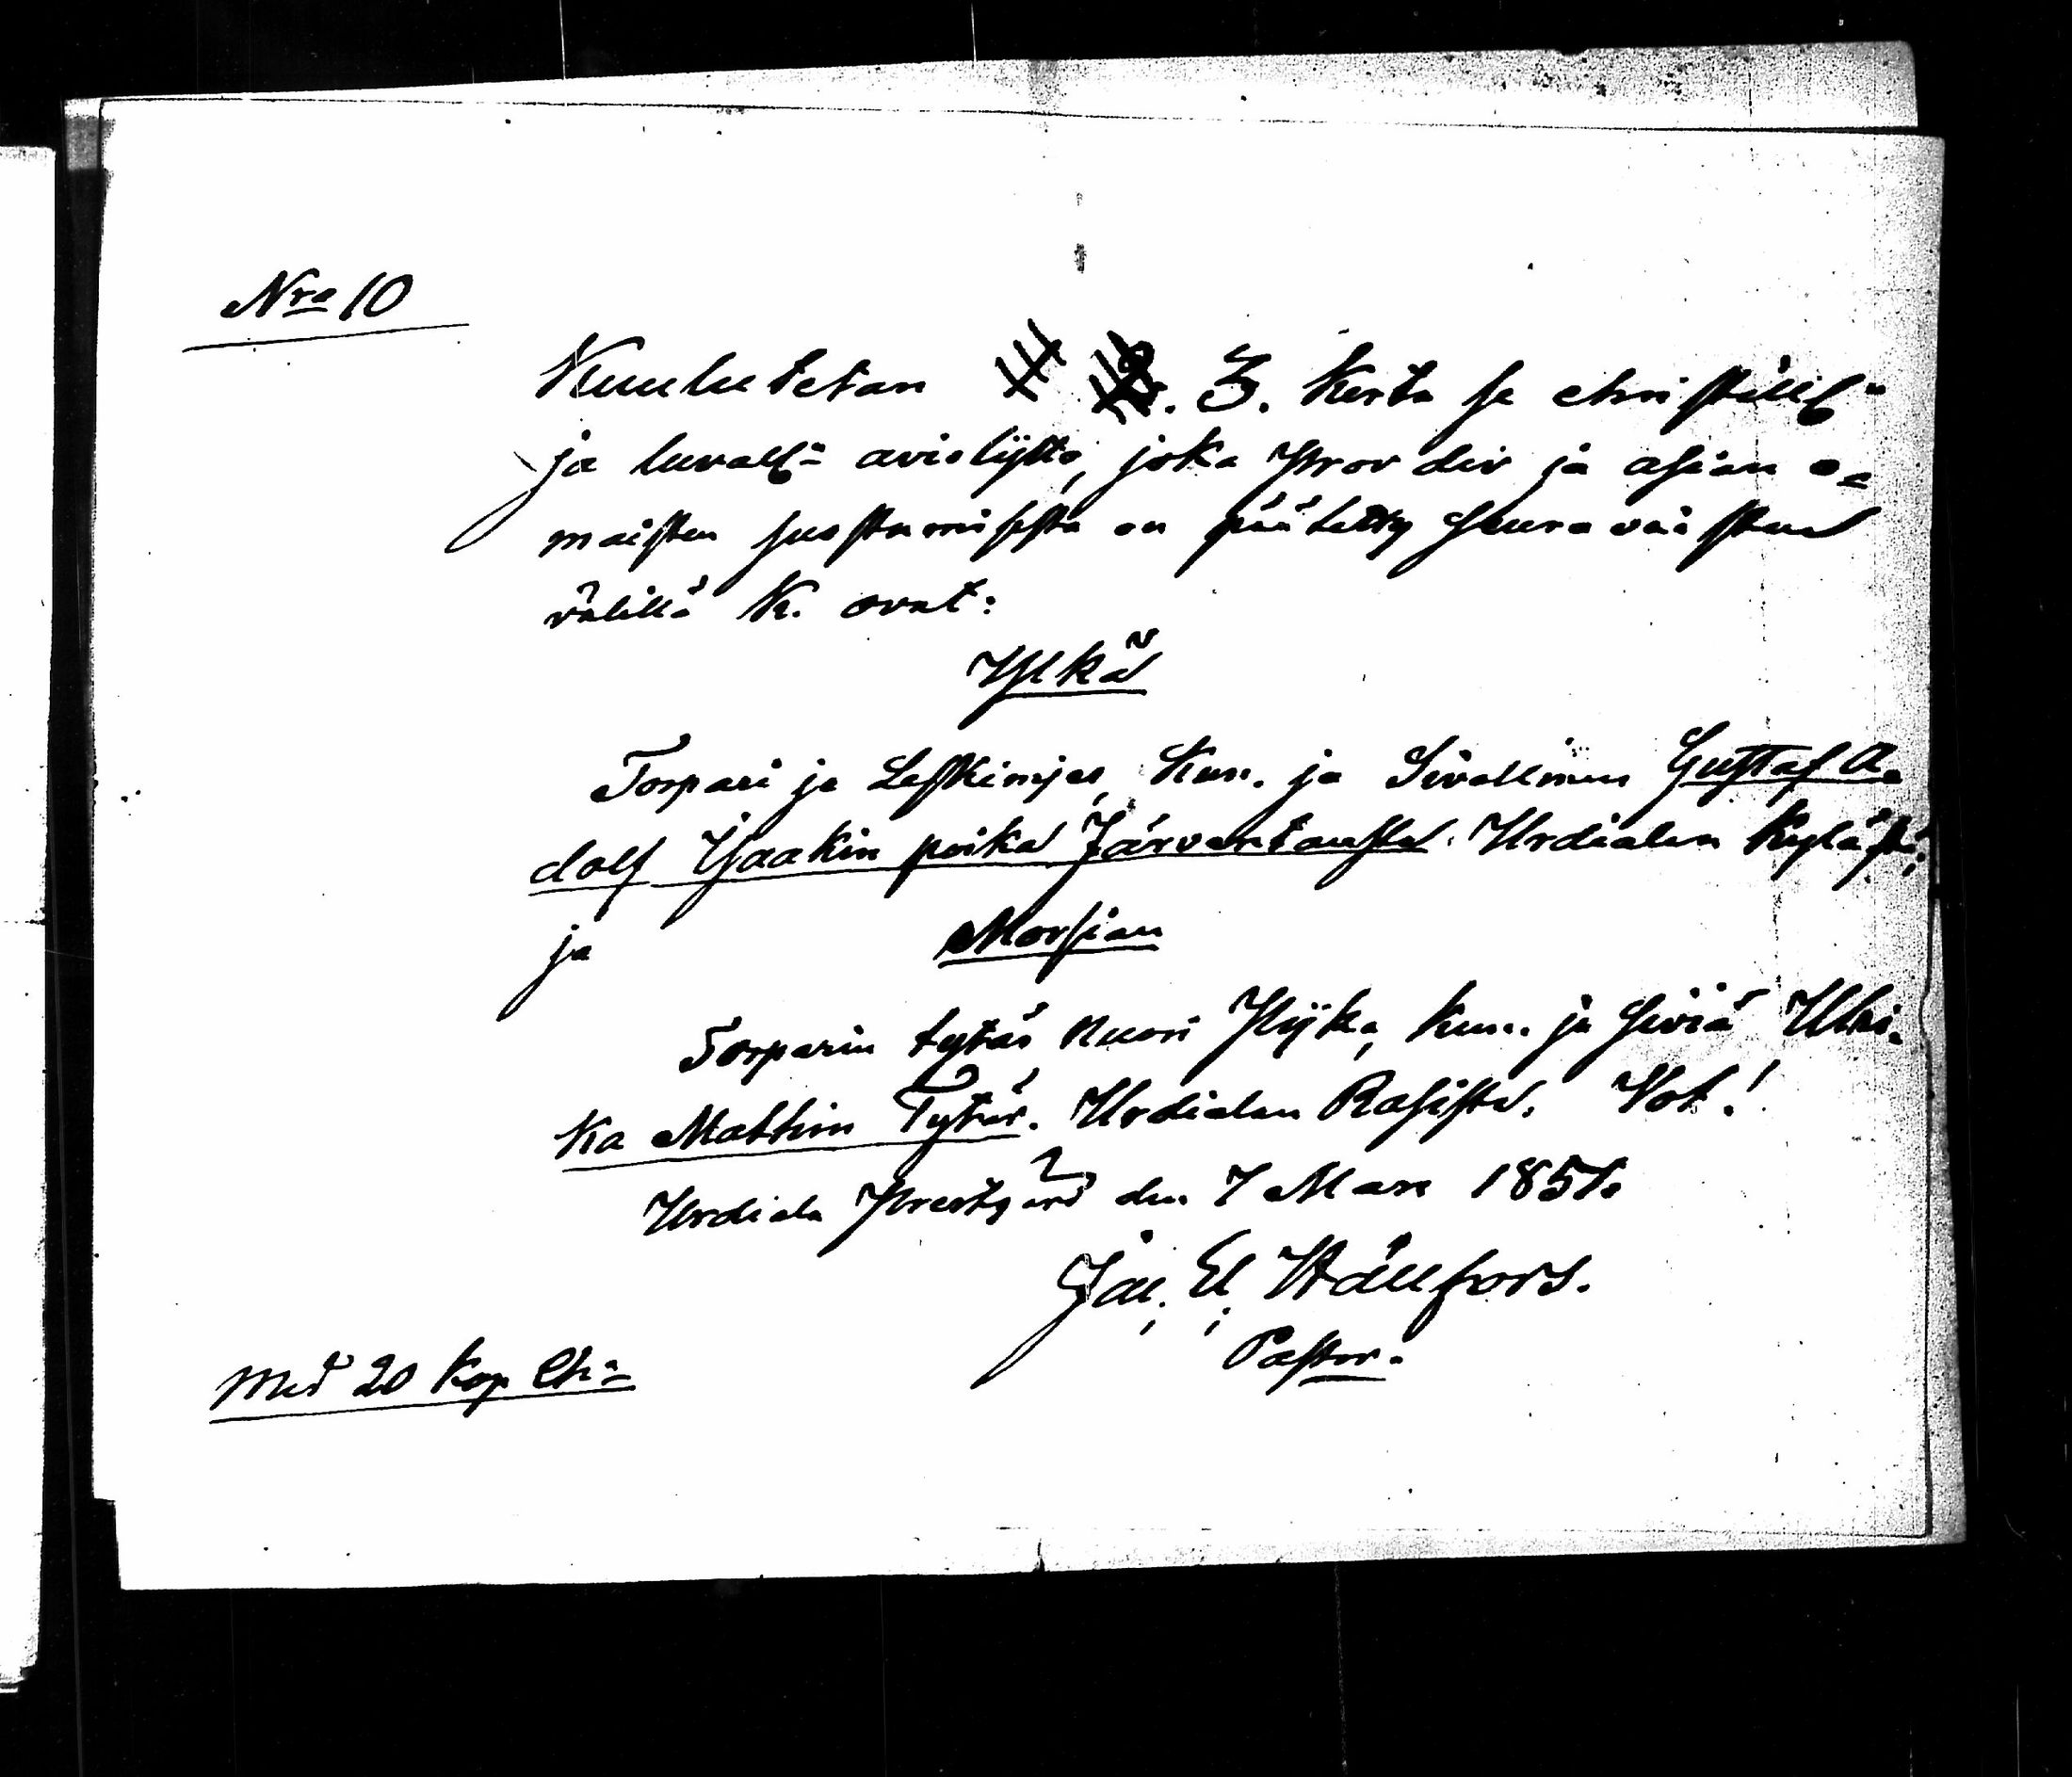 Nro 10
Kuulutetan 3. Kerta se christill:
ja luvall: avioliitto, joka Prov div ja asian o=
maisten suostumisesta on päätetty seuravaisten
välillä K. ovat:
Ylkä
Torpari ja Leskimjes, Kun. ja Sivellinen Gustaf A=
dolf Jaakin poika Järventausta. Urdialan Kylästä;
ja Morsian
Torparin tytär nuori Pijka, kun. ja siviä Ulri=
ka Mattin Tytär. Urdialan Rasista. Vot.!
Urdiala Prestgård den 7 Mars 1851.
Jac. El. Hällfors.
Pastor.
Med 20 Kop Ch: